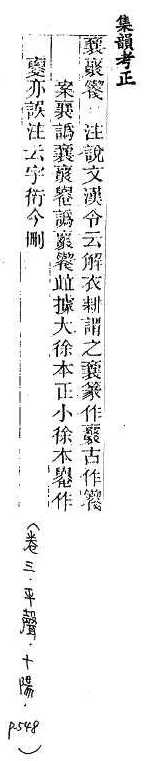 集韻考正
襄㐮𤕦 注說文漢令云解衣耕謂之襄篆作㐮古作𤕦
案襄譌㐮 譌 竝據大徐本正小徐本 作
亦誤注云字衍今刪
(卷三.平聲.十陽.p.548)